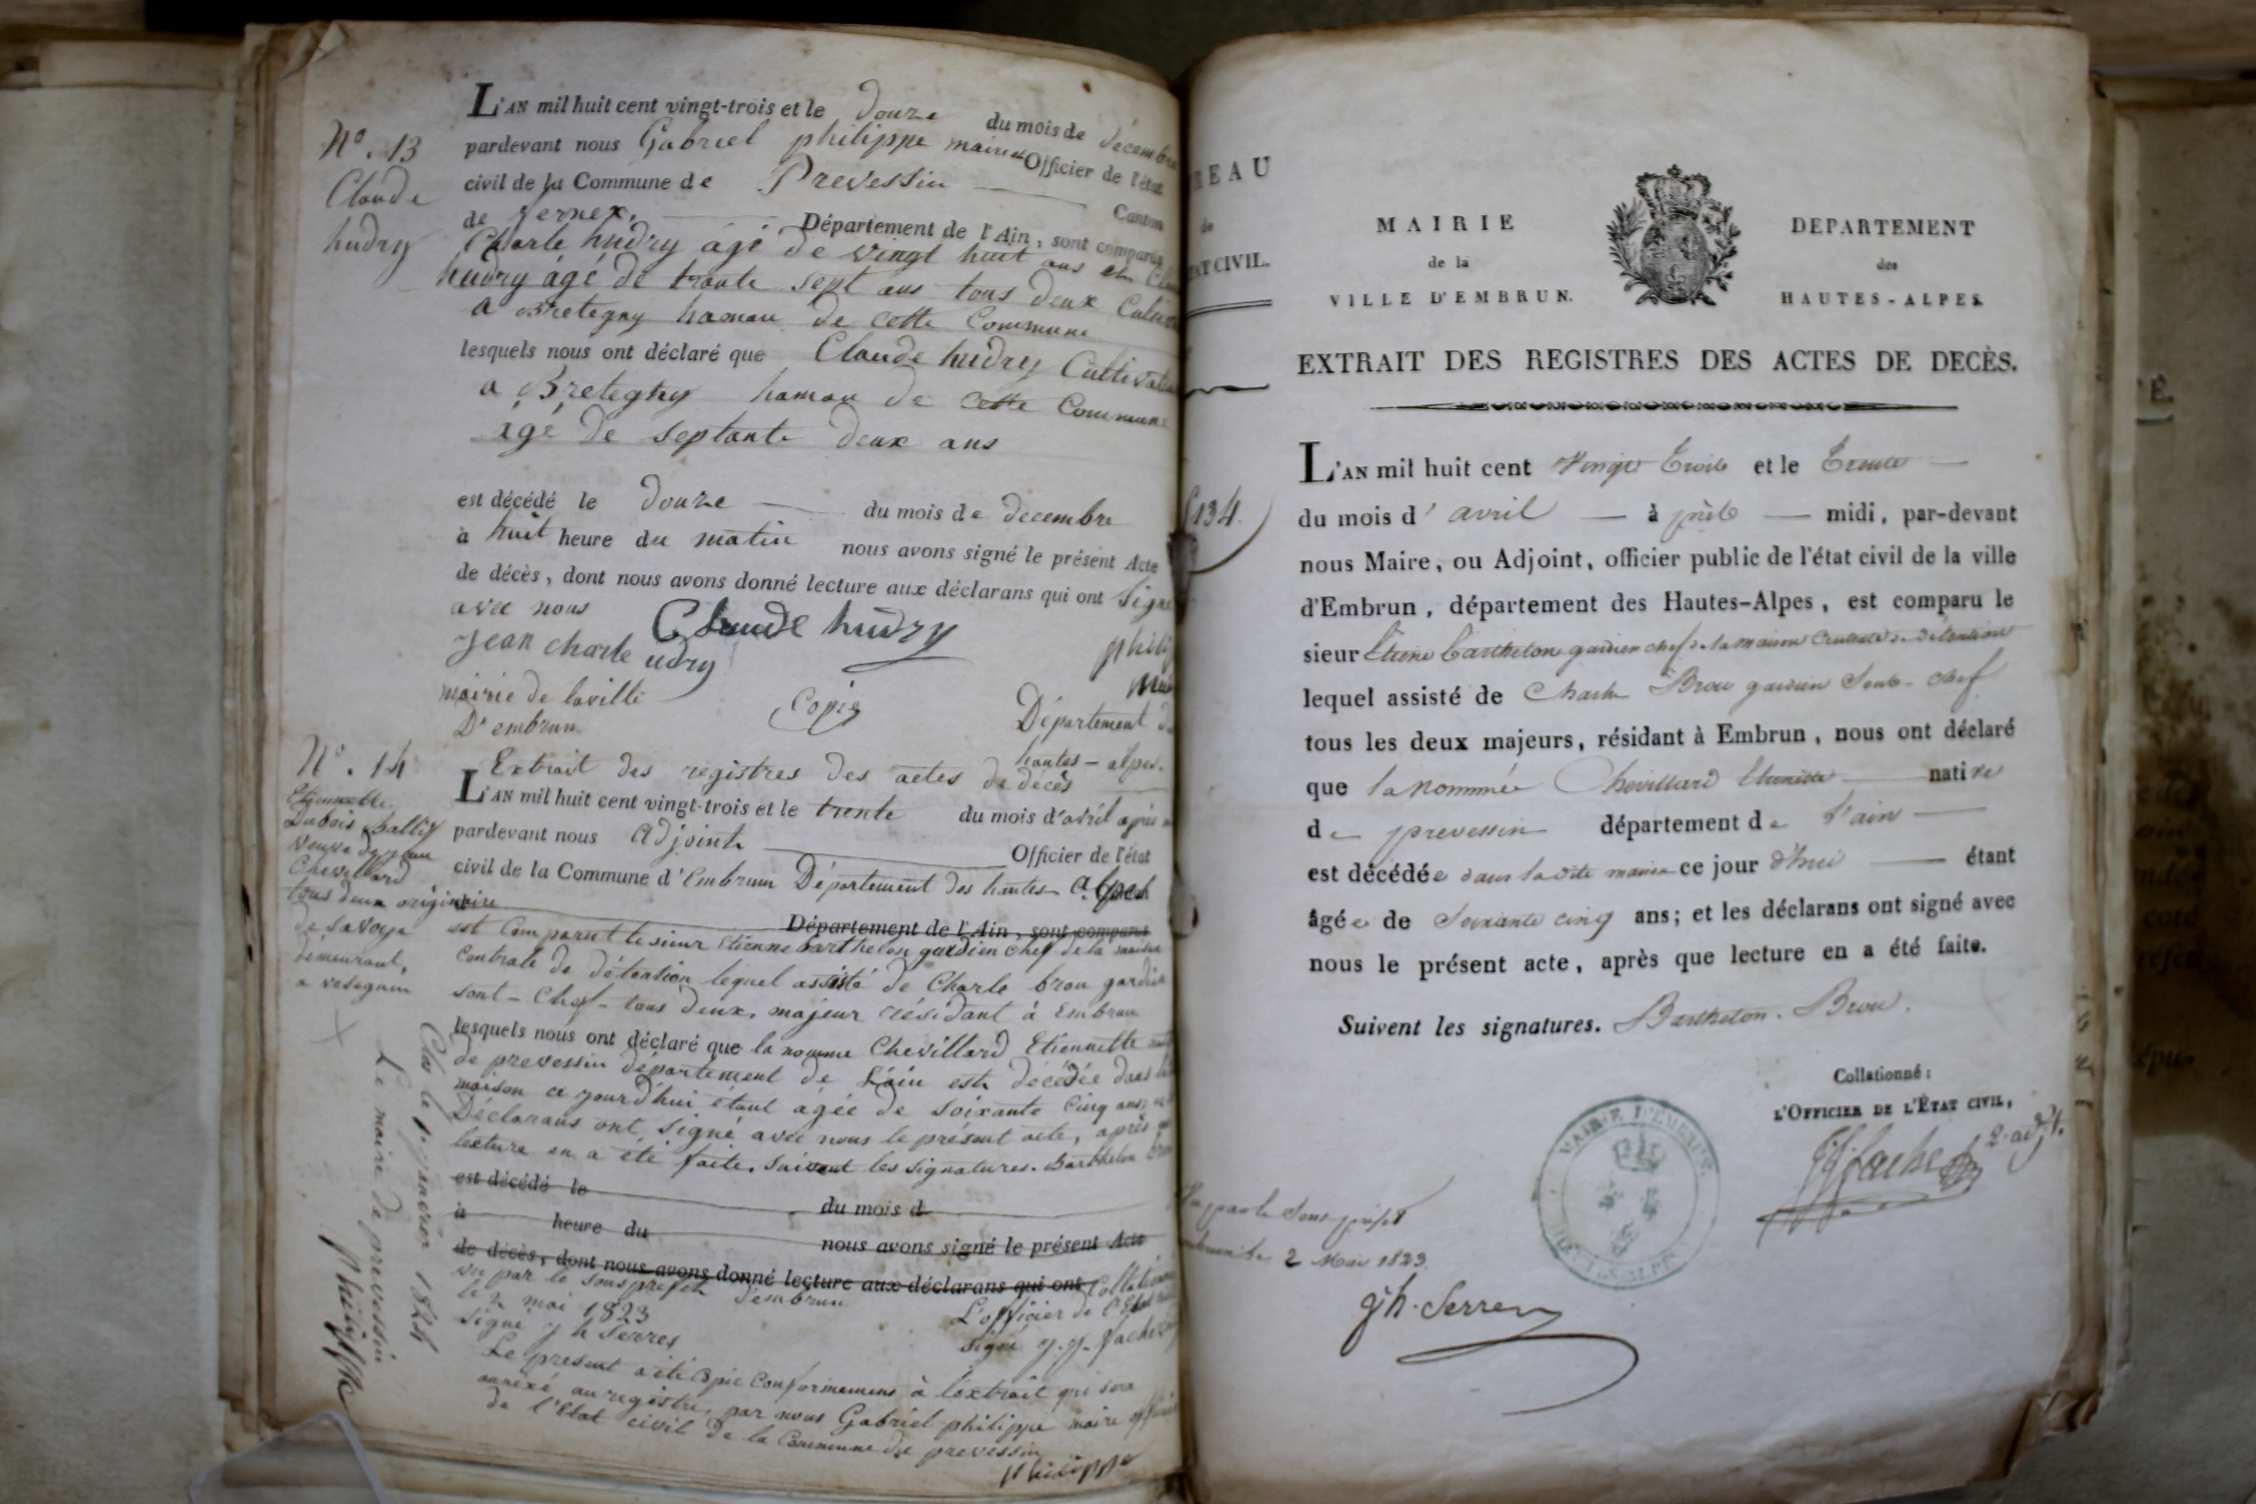 N°. 13
Claude
hudry
L'AN mil huit cent vingt-trois et le douze du mois de décembre
pardevant nous Gabriel philippe maire et Officier de l'état
civil de la Commune de Prevessin Canton
de fernex. Département de l'Ain, sont comparus
Charle hudry âgé de vingt huit ans et
hudry âgé de trante sept ans tous deux
a Bretegny hamau de cette Commune
lesquels nous ont déclaré que Claude hudry Cultivateur
a Bretegny hamau de cette Commune
âgé de septante deux ans
est décédé le douze du mois de decembre
à huit heure du matin nous avons signé le présent Acte
de décès, dont nous avons donné lecture aux déclarans qui ont signé
avec nous Claude hudry
jean charle udry
mairie de laville Copie Département
D'embrun hautes-alpes.
N°. 14
Etiennette
Dubois
veuve de jean
Chevillard
tous deux originaire
de Savoye
demeurant,
a vesegnin
Extrait des registres des actes de décès
L'AN mil huit cent vingt-trois et le trente du mois d'avril après
pardevant nous Adjoint Officier de l'état
civil de la Commune d'Embrun Département des hautes alpes
Département de l'Ain, sont comparus
est Comparut le sieur Etienne barthelon gardien chef de la maison
Centrale de détention lequel assisté de Charle brou gardien
sout-Chef-tous deux, majeur résidant à Embrun
lesquels nous ont déclaré que la nomme Chevillard Etiennette
de prevessin département de L'ain est décédée dans
maison ce jourd'hui étant agée de soixante Cinq ans
Déclarans ont signé avec nous le présent acte, après
lecture en a été faite. suivent les signatures. Barthelon
est décédé le du mois d
à heure du nous avons signé le présent Acte
de décès, dont nous avons donné lecture aux déclarans qui ont
vu par le sous prefet d'embrun
le 2 mai 1823 L'officier de l'Etat
signé j h Serres signé
Le present a été Copié Conformement à l'extrait qui sera
annexé au registre, par nous Gabriel philippe maire
de l'Etat civil de la Commune de prevessin
philippe
Clos le 1824
Le maire de prevessin
philippe
REAU
de
ÉTAT CIVIL.
134.
MAIRIE
de la
VILLE D'EMBRUN.
DEPARTEMENT
des
HAUTES-ALPES.
EXTRAIT DES REGISTRES DES ACTES DE DECÈS.
L'AN mil huit cent vingt Trois et le Trente
du mois d'avril à près midi, par-devant
nous Maire, ou Adjoint, officier public de l'état civil de la ville
d'Embrun, département des Hautes-Alpes, est comparu le
sieur Etienne Barthelon gardien chef de la maison Centrale de detention
lequel assisté de Charle Brou gardien Sout-chef
tous les deux majeurs, résidant à Embrun, nous ont déclaré
que la nommée Chevillard Etiennette native
de prevessin département de l'ain
est décédée dans la dite maison ce jour d'hui étant
âgée de Soixante cinq ans; et les déclarans ont signé avec
nous le présent acte, après que lecture en a été faite.
Suivent les signatures. Barthelon. Brou.
Collationné:
L'OFFICIER DE L'ÉTAT CIVIL,
MAIRIE D'EMBRUN
Vu par le Sous préfet
2 Mai 1823.
jh. Serres